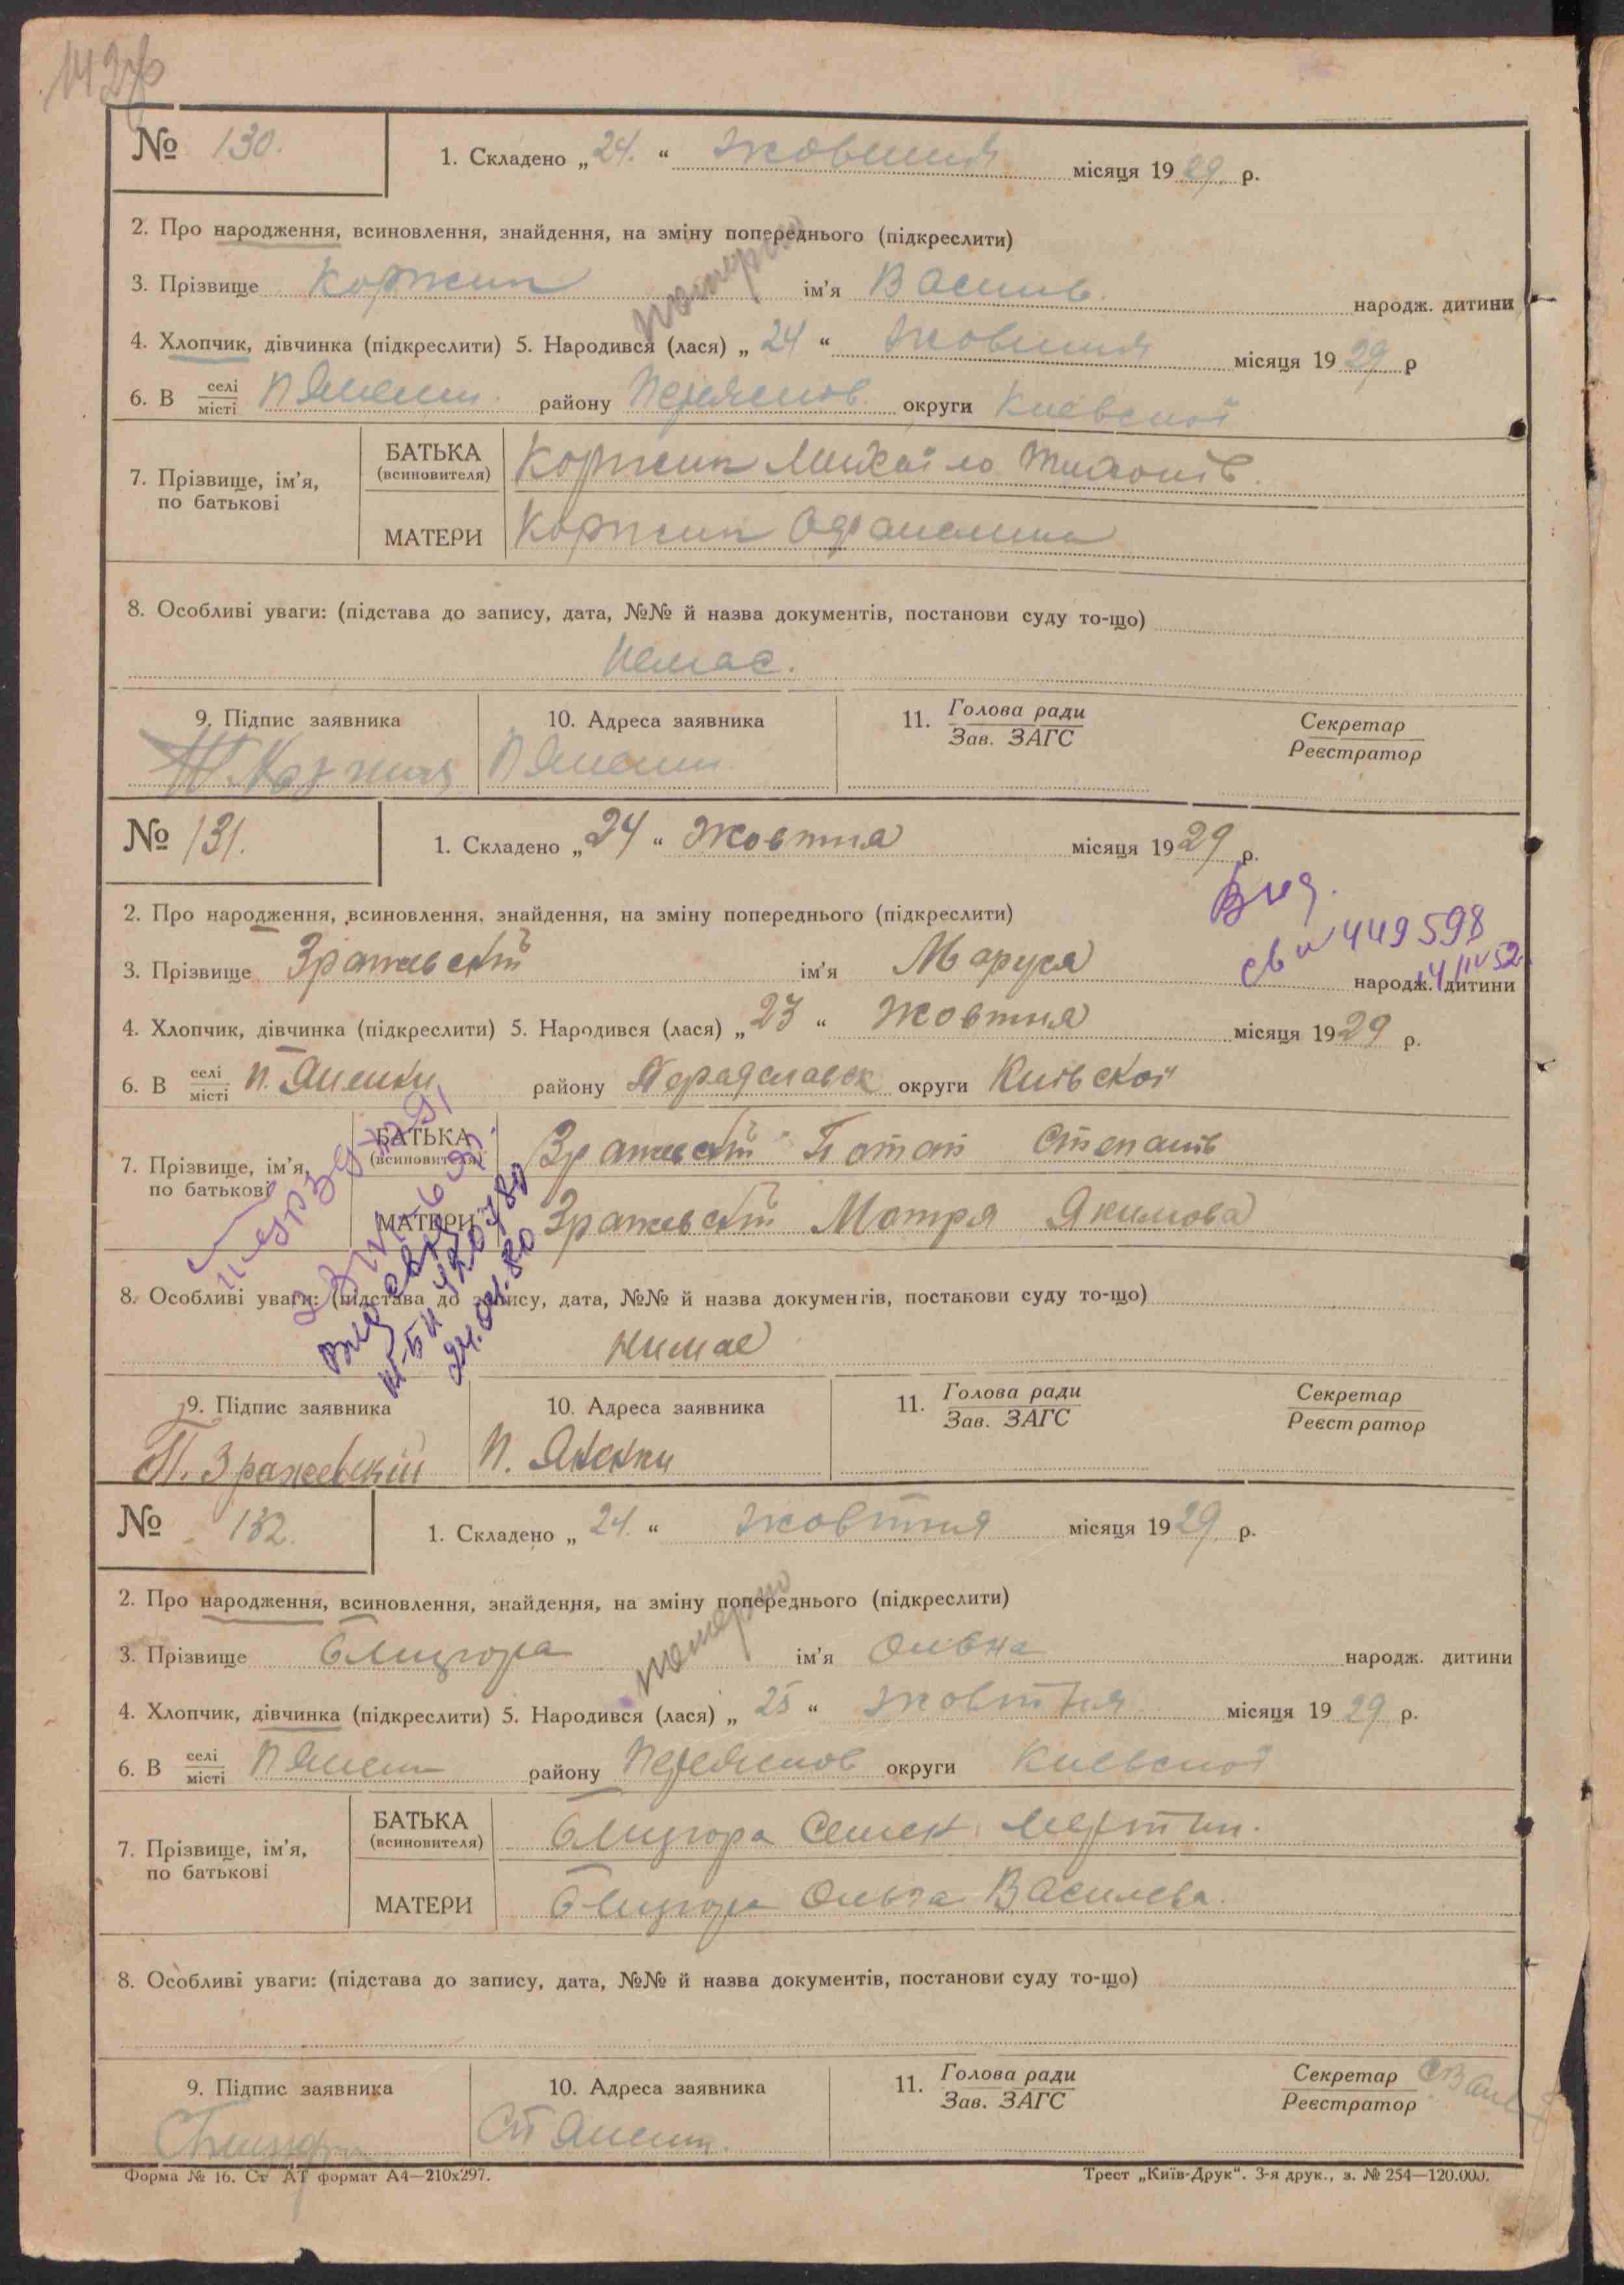 № 130. 1. Складено „24.“ жовтня місяця 1929 р.
2. Про народження, всиновлення, знайдення, на зміну попереднього (підкреслити)
3. Прізвище Коржик ім'я Василь народж. дитини
4. Хлопчик, дівчинка (підкреслити) 5. Народився (лася) „24“ жовтня місяця 1929 р
6. В селі/місті П Яненки району Переяслов. округи Киевської
7. Прізвище, ім'я, по батькові
БАТЬКА (всиновителя) Коржик Михайло Тихонів.
МАТЕРИ Коржик
8. Особливі уваги: (підстава до запису, дата, №№ й назва документів, постанови суду то-що)
Немає.
9. Підпис заявника 10. Адреса заявника 11. Голова ради/Зав. ЗАГС Секретар/Реєстратор
П Яненки
№ 131. 1. Складено „24“ Жовтня місяця 1929 р.
Вид.
2. Про народження, всиновлення, знайдення, на зміну попереднього (підкреслити)
св № 449598
3. Прізвище Зражевскі ім'я Маруся народж. дитини
4. Хлопчик, дівчинка (підкреслити) 5. Народився (лася) „23“ Жовтня місяця 1929 р.
6. В селі/місті П. Яненки району округи Київскої
7. Прізвище, ім'я, по батькові
БАТЬКА (всиновителя) Зражевскі Потап Степанів
МАТЕРИ Зражевскі Мотря Якимова
8. Особливі уваги: (підстава до запису, дата, №№ й назва документів, постанови суду то-що)
Нимає
9. Підпис заявника 10. Адреса заявника 11. Голова ради/Зав. ЗАГС Секретар/Реєстратор
П. Зражевский П. Яненки
№ 132. 1. Складено „24.“ жовтня місяця 1929 р.
2. Про народження, всиновлення, знайдення, на зміну попереднього (підкреслити)
3. Прізвище ім'я народж. дитини
4. Хлопчик, дівчинка (підкреслити) 5. Народився (лася) „25“ жовтня місяця 1929 р.
6. В селі/місті П Яненки району Переяслов округи Киевської
7. Прізвище, ім'я, по батькові
БАТЬКА (всиновителя) Семен
МАТЕРИ Ольга Василева.
8. Особливі уваги: (підстава до запису, дата, №№ й назва документів, постанови суду то-що)
9. Підпис заявника 10. Адреса заявника 11. Голова ради/Зав. ЗАГС Секретар/Реєстратор
Яненки.
Форма № 16. Ст АТ формат А4—210х297. Трест „Київ-Друк“. 3-я друк., з. № 254—120.000.